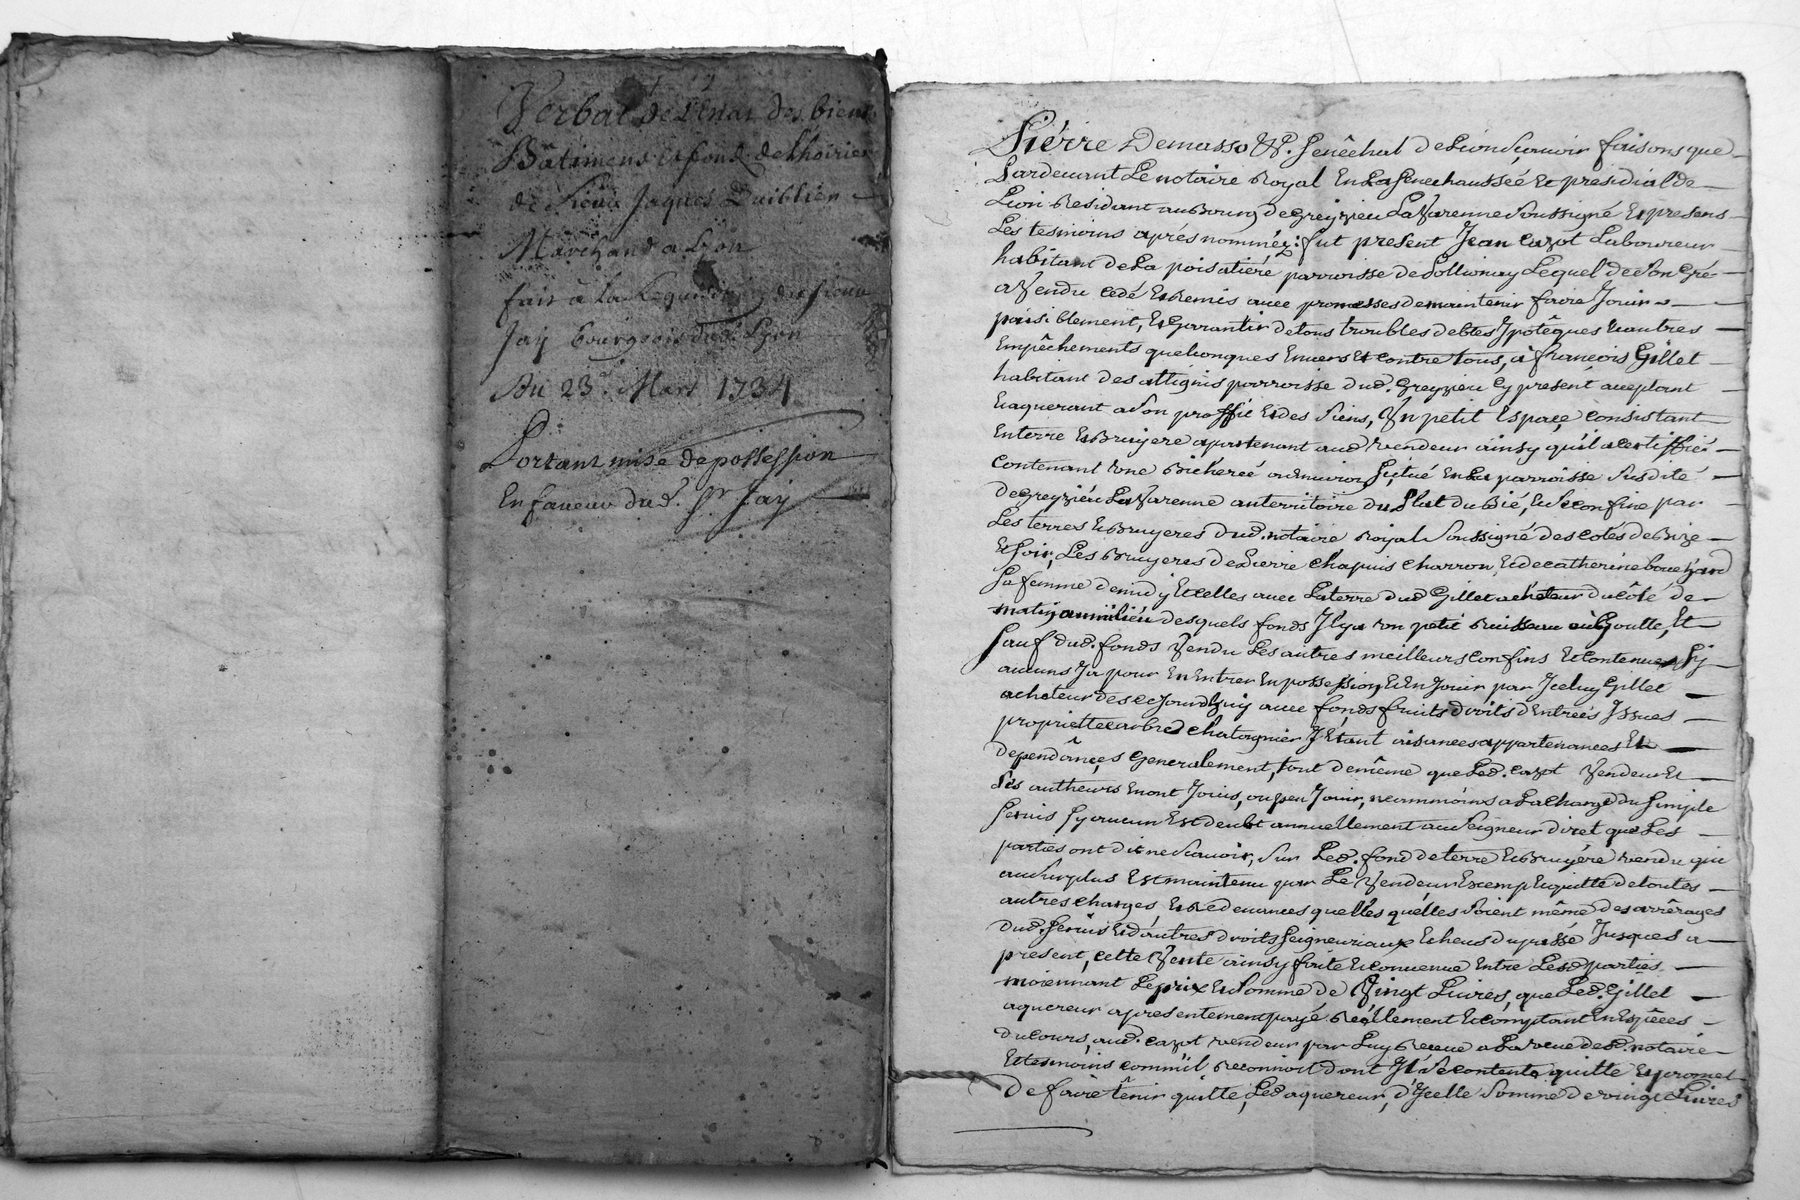 Verbal de l'Etat des biens
Bâtimens et fond de l'hoirier
de Sieur Jaques Duiblien
Marchand a Lyon
fait à la Requisition du sieur
Jay bourgeois dud. Lyon
Du 23e. Mars 1734
Portant mise de possession
En faveur dud. Sr. Jay
Pierre Demasso Senêchal de Lion Sçavoir faisons que
Pardevant Le notaire Royal En La Senechaussée et presidial de
Lion Residant au Bourg de Greyzieu La Varenne Soussigné Et presens
Les tesmoins après nomméz: fut present Jean Cazot Laboureur
habitant de La poisatiéré parroisse de Sollionay Lequel de Son Gré
a Vendu cedé Et Remis avec promesses de maintenir faire Jouir
paisiblement, Et Garantir de tous troubles debtes Ipotêques Et autres
Empêchements quelconques Envers Et contre tous, à françois Gillet
habitant des attignis parroisse dud. Greyzieu Cy present acceptant
Et aquerant a Son proffit Et des Siens, Un petit Espace consistant
En terre Et Bruyere apartenant aud. vendeur ainsy qu'il a certiffié
contenant une Bicherée ou Environ Situé En La parroisse Susdite
de Greyzieu La Varenne au territoire du Plat du Bié, Et Se confine par
Les terres Et Bruyeres dud. notaire Royal Soussigné des cotés de Bize
Et Soir, Les Bruyeres de Pierre Chapuis Charron, Et de Catherine bouchard
Sa femme de midy Et celles avec La terre dud. Gillet acheteur du côté de
matin, au miliéu desquels fonds Il y a un petit Ruisseau ou Goutte, Et
Sauf dud. fonds Vendu Les autres meilleurs confins Et contenues Sy
aucuns Ja pour En Entrer En possession Et En Jouir par Iceluy Gillet
acheteur des ce Jourd'huy avec fonds fruits droits d'Entrées Issues
propriette arbre Chatagnier Y Etant aisances appartenances Et
dependânces Generalement, tout de même que Led. Cazot Vendeur Et
Ses autheurs En ont Jouis, ou peu Jouir, neammoins a La Charge du Simple
Servis Sy aucun Est deubt annuellement au Seigneur diret que Les
parties ont dit ne Scavoir, Sur Led. fond de terre Et Bruyéré vendu qui
au Surplus Est maintenu par Le Vendeur Exempt Et quitte de toutes
autres Charges Et Redevances quelles quelles Soient même des arrêrages
dud. Servis Et d'autres droits Seigneuriaux Echeus du passé Jusques a
present, cette Vente ainsy faite Et convenue Entre Lesd. parties
moiennant Le prix Et Somme de Vingt Livres, que Led. Gillet
aquereur a presentement payé Reéllement Et comptant En Espêces
du cours, aud. Cazot vendeur par Luy Receue a La veue desd. notaire
Et tesmoins comm'il Reconnoit dont Il S'é contente quitte Et promet
de faire tênir quitte, Led. aquereur, d'Icelle Somme de vingt Livres